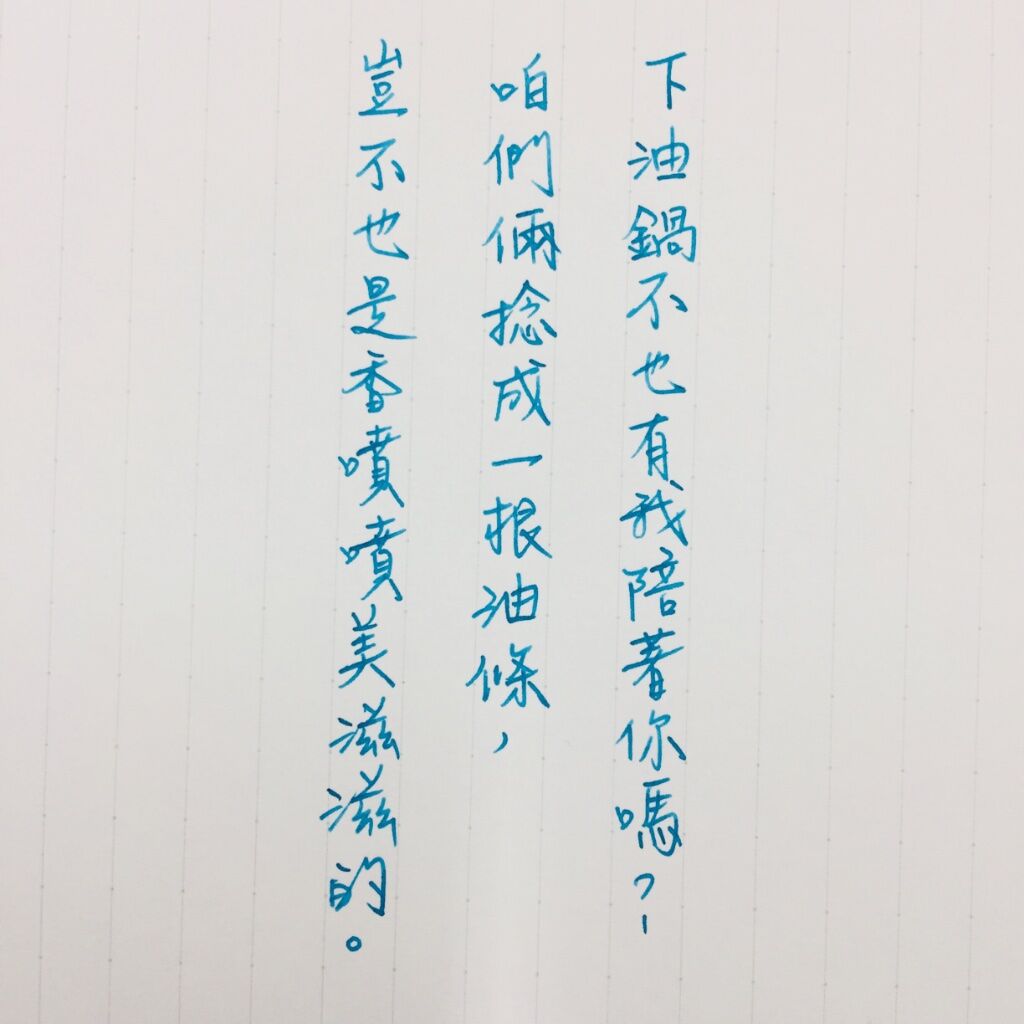 下油鍋不也有我陪著你嗎？
咱們倆捻成一根油條，
豈不也是香噴噴美滋滋的。